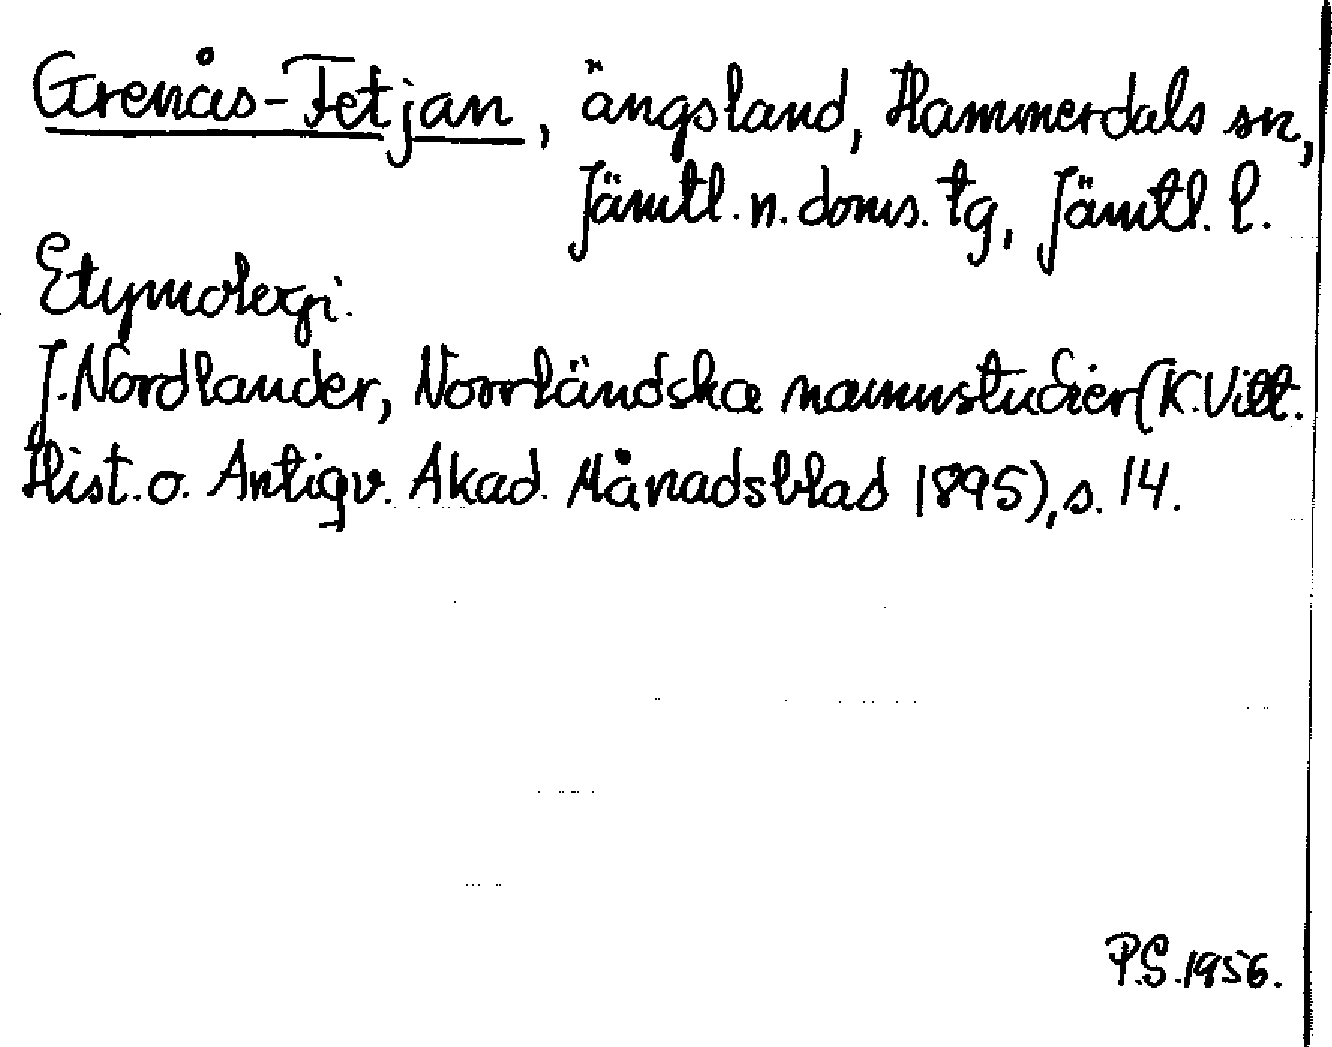 Grenås-Fetjan, ängsland, Hammerdals sn,
Jämtl. n. doms. tg, Jämtl. l.
Etymologi.
J. Nordlander, Norrländska namnstudier (K. Vitt.
Hist. o. Antiqv. Akad. Månadsblad 1895), s. 14.
P.S. 1956.